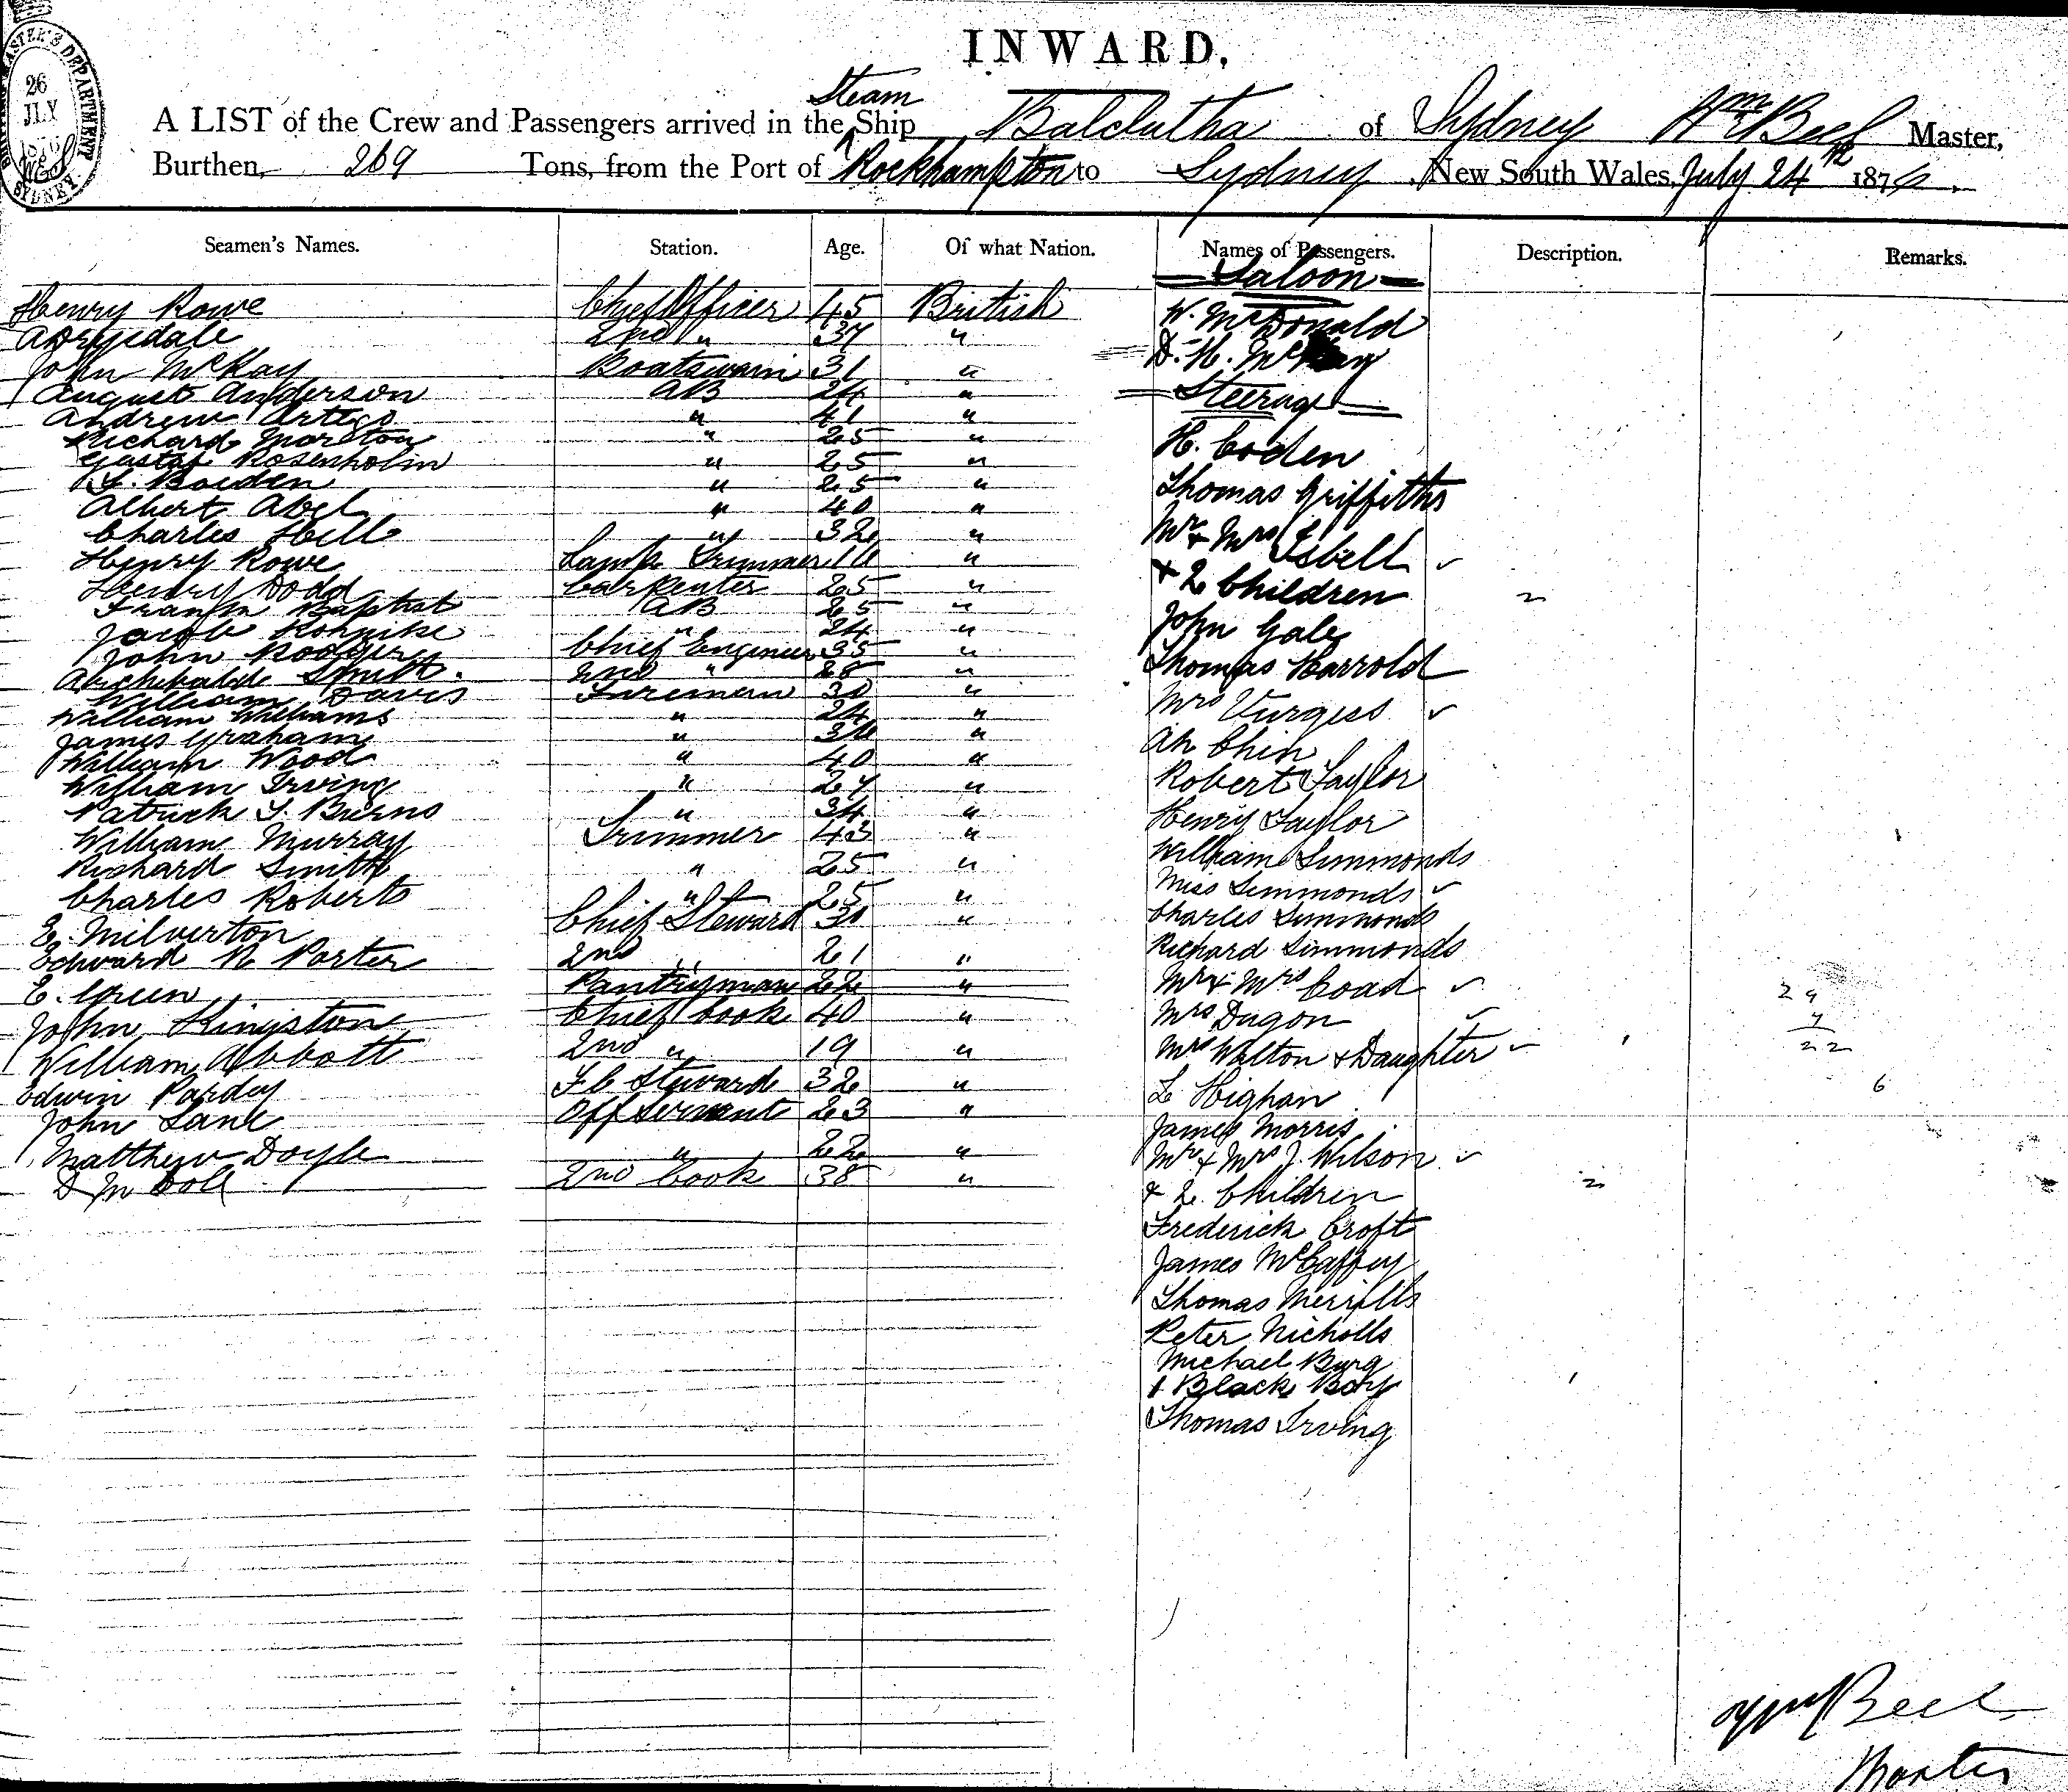 INWARD.
MASTER'S DEPARTMENT
26
JLY
1876
SYDNEY
Steam
A LIST of the Crew and Passengers arrived in the Ship Balclutha of Sydney Wm Beel Master,
Burthen, 269 Tons, from the Port of Rockhampton to Sydney, New South Wales, July 24th 1876.
Seamen's Names. Station. Age. Of what Nation. Names of Passengers. Description. Remarks.
Henry Rowe Chief Officer 45 British
2nd " 37 "
John McKay Boatswain 31 "
August Anderson AB 24 "
Andrew " 41 "
Richard Morston " 25 "
Gustaf Rosenholm " 25 "
" 25 "
Albert Abel " 40 "
Charles Hill " 32 "
Henry Rowe Lamp Trimmer 16 "
Henry Dodd Carpenter 25 "
Baptist AB 25 "
Jacob " 24 "
John Chief Engineer 35 "
Archibald Smith 2nd " 28 "
William Davis Fireman 30 "
William Williams " 24 "
James Graham " "
William Wood " 40 "
William Irving " 27 "
Patrick " 34 "
William Murray Trimmer 43 "
Richard Smith " 25 "
Charles Roberts " 25 "
E. Milverton Chief Steward 30 "
Edward N Porter 2nd " 21 "
E. Green Pantryman 22 "
John Kingston Chief Cook 40 "
William Abbott 2nd " 19 "
Edwin Pardey F.C. Steward 32 "
John Lane Off Servant 23 "
Matthew Doyle " 22 "
2nd Cook 38 "
Saloon
W. McDonald
D. H.
Steerage
H. Coden
Thomas Griffiths
Mr & Mrs Isbell
& 2 Children 2
John Gale
Thomas Harrold
Mrs Vurgess
Ah Chin
Robert Taylor
Henry Taylor
William Simmonds
Miss Simmonds
Charles Simmonds
Richard Simmonds
Mr & Mrs Coad
Mrs Dugon
Mrs Walton & Daughter
L Highan
James Morris
Mr & Mrs J. Wilson
& 2 Children 2
Frederick Croft
James McCaffey
Thomas Merrills
Peter Nicholls
Michael Burg
1 Black Boy
Thomas Irving
29
7
22
6
Wm Beel
Master